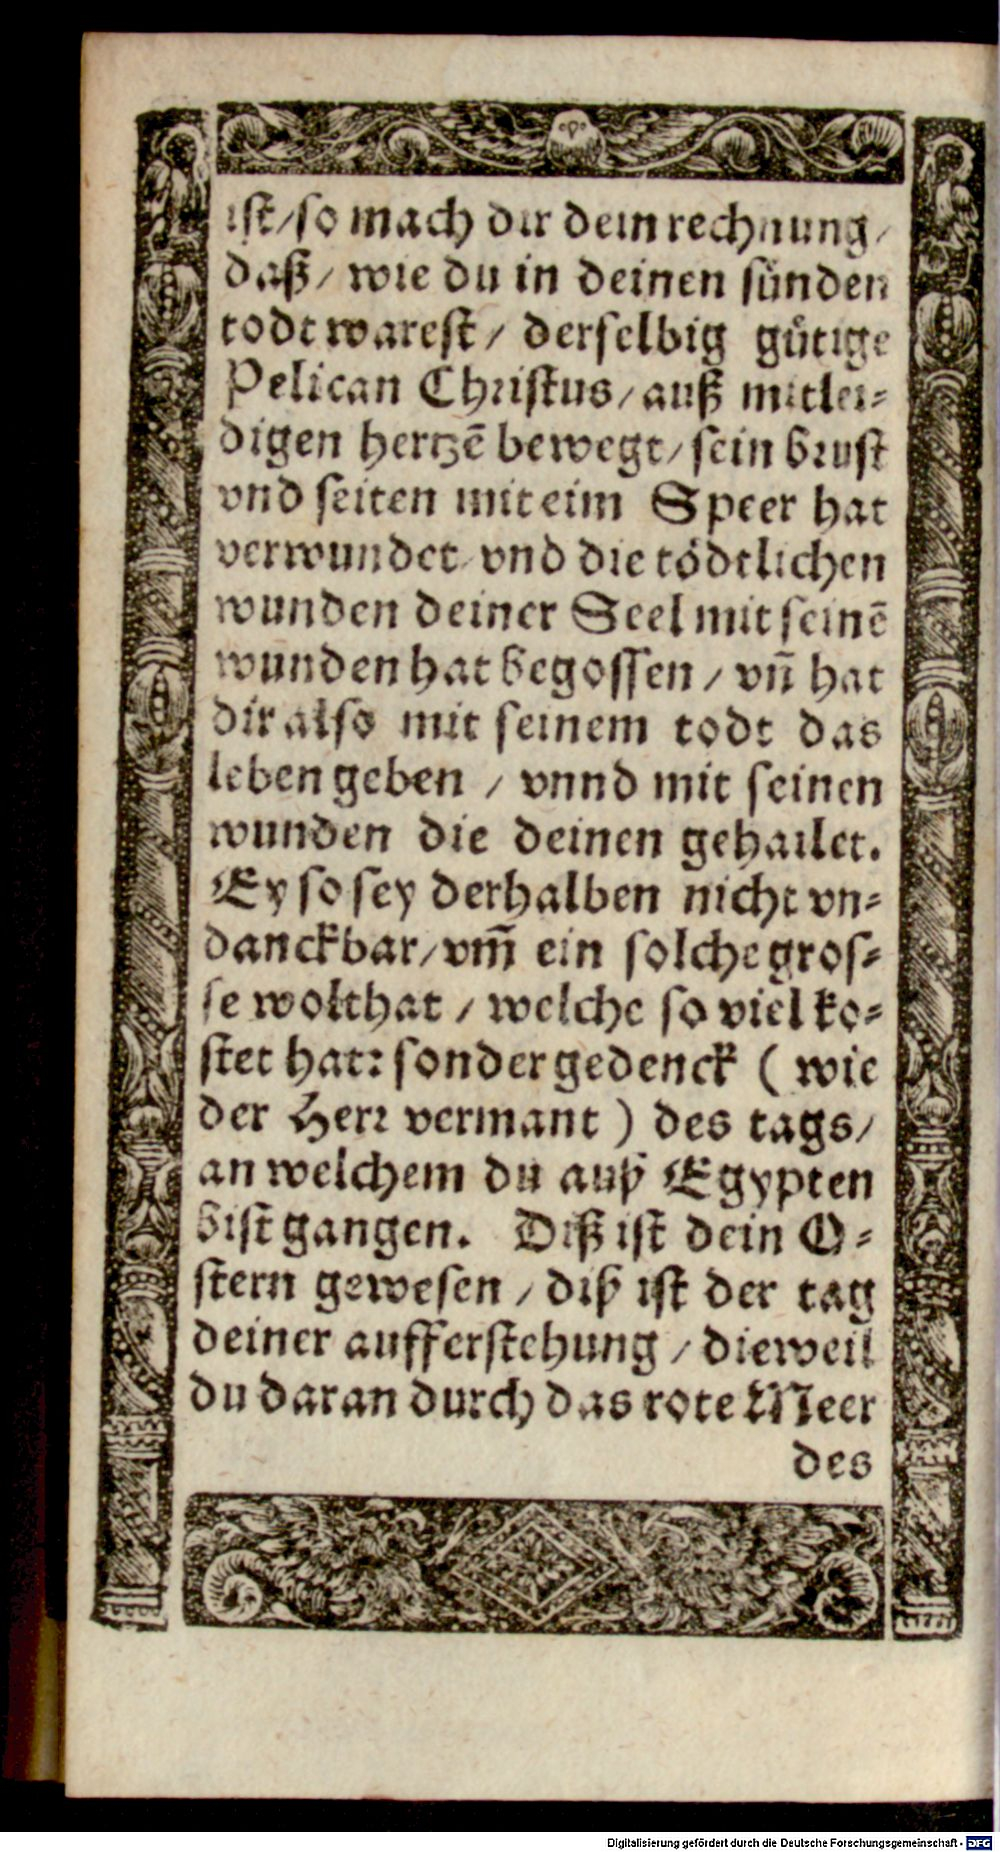 ist/ so mach dir dein rechnung/
daß/ wie du in deinen sünden
todt warest/ derselbig gütige
Pelican Christus/ auß mitlei-
digen hertzē bewegt/ sein brust
vnd seiten mit eim Speer hat
verwundet/ vnd die tödtlichen
wunden deiner Seel mit seinē
wunden hat begossen/ vñ hat
dir also mit seinem todt das
leben geben/ vnnd mit seinen
wunden die deinen gehailet.
Ey so sey derhalben nicht vn-
danckbar/ vm̄ ein solche gros-
se wolthat/ welche so viel ko-
stet hat: sonder gedenck (wie
der Herr vermant) des tags/
an welchem du auß Egypten
bist gangen. Diß ist dein O-
stern gewesen/ diß ist der tag
deiner aufferstehung/ dieweil
du daran durch das rote Meer
des
Digitalisierung gefördert durch die Deutsche Forschungsgemeinschaft - DFG